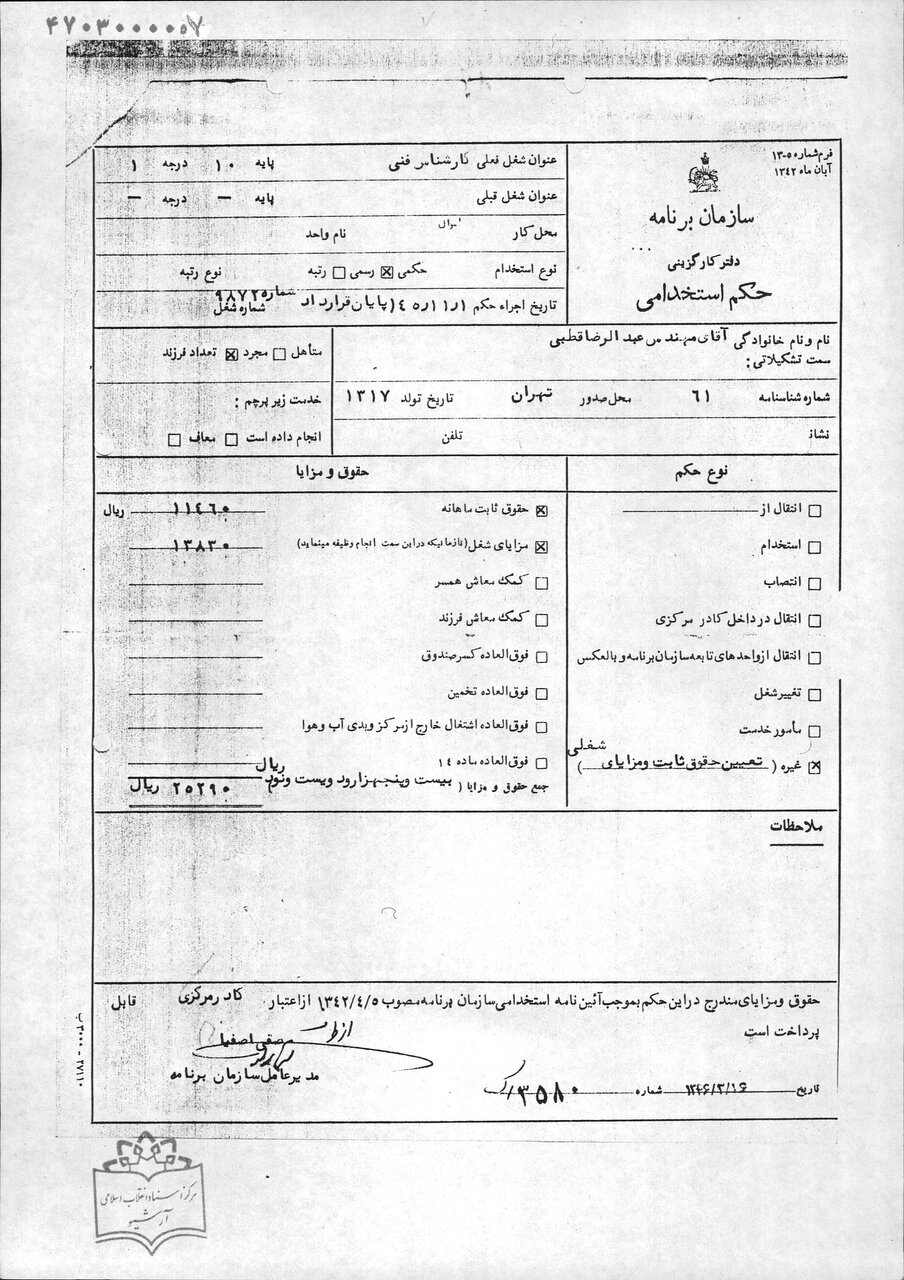 ۴۷۰۳۰۰۰۰۵۷
فرم شماره ۵-۱۳
آبان ماه ۱۳۴۲
سازمان برنامه
دفتر کارگزینی
حکم استخدامی
عنوان شغل فعلی کارشناس فنی پایه ۱۰ درجه ۱
عنوان شغل قبلی پایه — درجه —
محل کار نام واحد
نوع استخدام حکمی ☒ رسمی ☐ رتبه نوع رتبه
تاریخ اجراء حکم ۴۵/۱۱/۱ پایان قرارداد شماره ۹۸۷۲۵
شماره شغل
نام و نام خانوادگی آقای مهندس عبدالرضا قطبی
سمت تشکیلاتی:
شماره شناسنامه ۶۱ محل صدور تهران تاریخ تولد ۱۳۱۷
نشانی تلفن
متأهل ☐ مجرد ☒ تعداد فرزند
خدمت زیر پرچم:
انجام داده است ☐ معاف ☐
نوع حکم
☐ انتقال از
☐ استخدام
☐ انتصاب
☐ انتقال در داخل کادر مرکزی
☐ انتقال از واحدهای تابعه سازمان برنامه و بالعکس
☐ تغییر شغل
☐ مأمور خدمت
☒ غیره (تعیین حقوق ثابت و مزایای شغلی)
حقوق و مزایا
☒ حقوق ثابت ماهانه ۱۱۴۶۰ ریال
☒ مزایای شغل (تا زمانیکه در این سمت انجام وظیفه مینماید) ۱۳۸۳۰
☐ کمک معاش همسر
☐ کمک معاش فرزند
☐ فوق‌العاده کسر صندوق
☐ فوق‌العاده تخمین
☐ فوق‌العاده اشتغال خارج از مرکز و بدی آب و هوا
☐ فوق‌العاده ماده ۱۴
جمع حقوق و مزایا (بیست وپنجهزارود ویست ونود ریال) ۲۵۲۹۰ ریال
ملاحظات
حقوق ومزایای مندرج دراین حکم بموجب آئین نامه استخدامی سازمان برنامه مصوب ۱۳۴۲/۴/۵ از اعتبار کادرمرکزی قابل
پرداخت است
از طرف
صفی اصفیاء
مدیرعامل سازمان برنامه
تاریخ ۱۳۴۶/۳/۱۶ شماره ۳۵۸۰
۲۷۱۱۰ - ۳۰۰۰ ب
مرکز اسناد انقلاب اسلامی
آرشیو